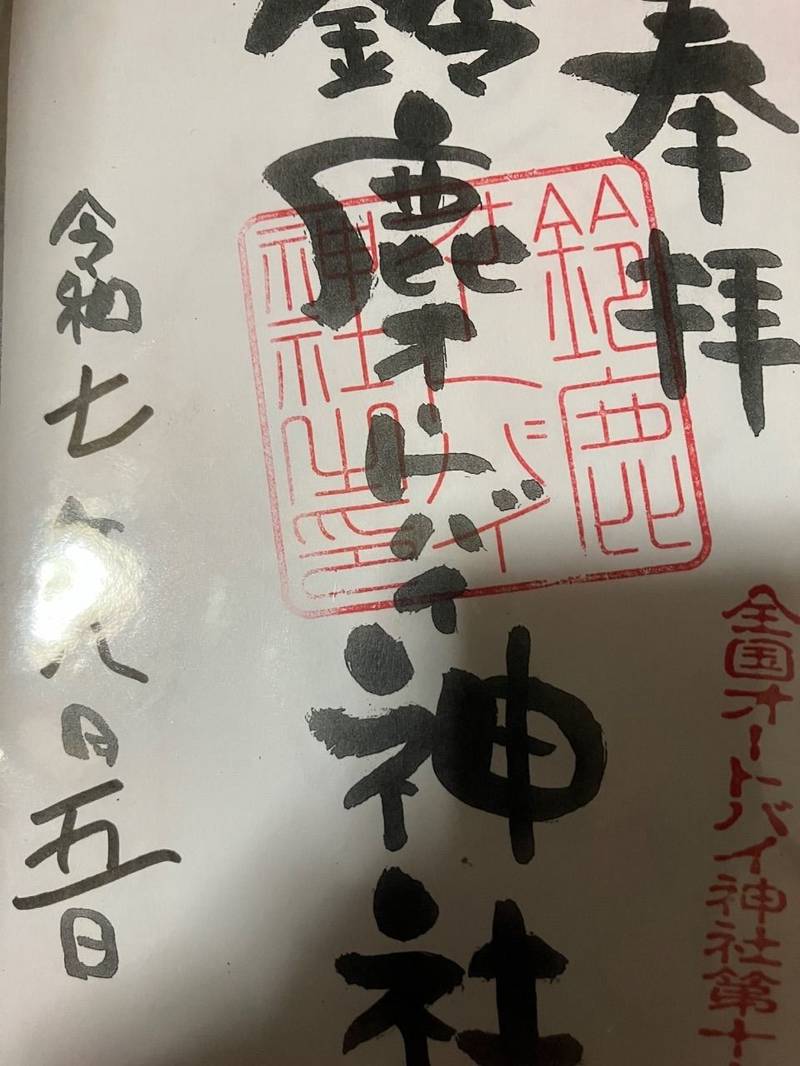 奉拝
全国オートバイ神社第十
鈴鹿オートバイ神社
鈴鹿
オートバイ
神社之印
令和七年八月五日